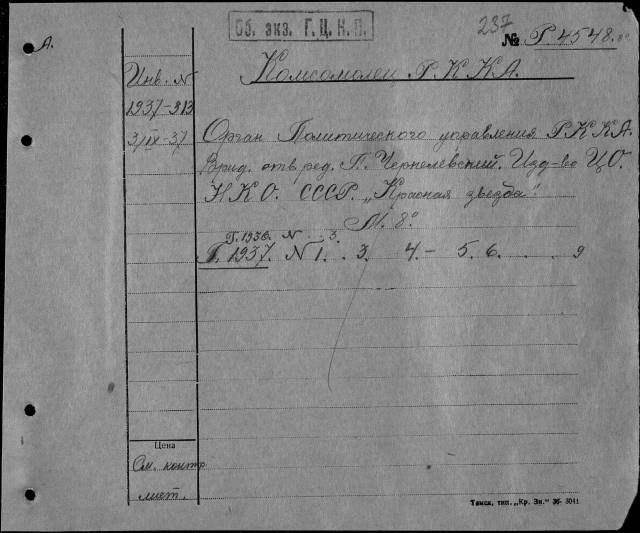 Об. экз. Г.Ц.К.П.
237
№ Р.4548.8°
А.
Комсомолец Р.К.К.А.
Инв. N
1937-913
3/IX-37
Орган Политического управления Р.К.К.А.
Врид. отв. ред. П. Чернелевский. Изд-во Ц.О.
Н.К.О. СССР. „Красная звезда".
М. 8°
Г. 1936. N . . 3.
Г. 1937. N 1. . 3. 4.- 5. 6. . . . 9
Цена
См. контр
лист.
Томск, тип. „Кр. Зн."